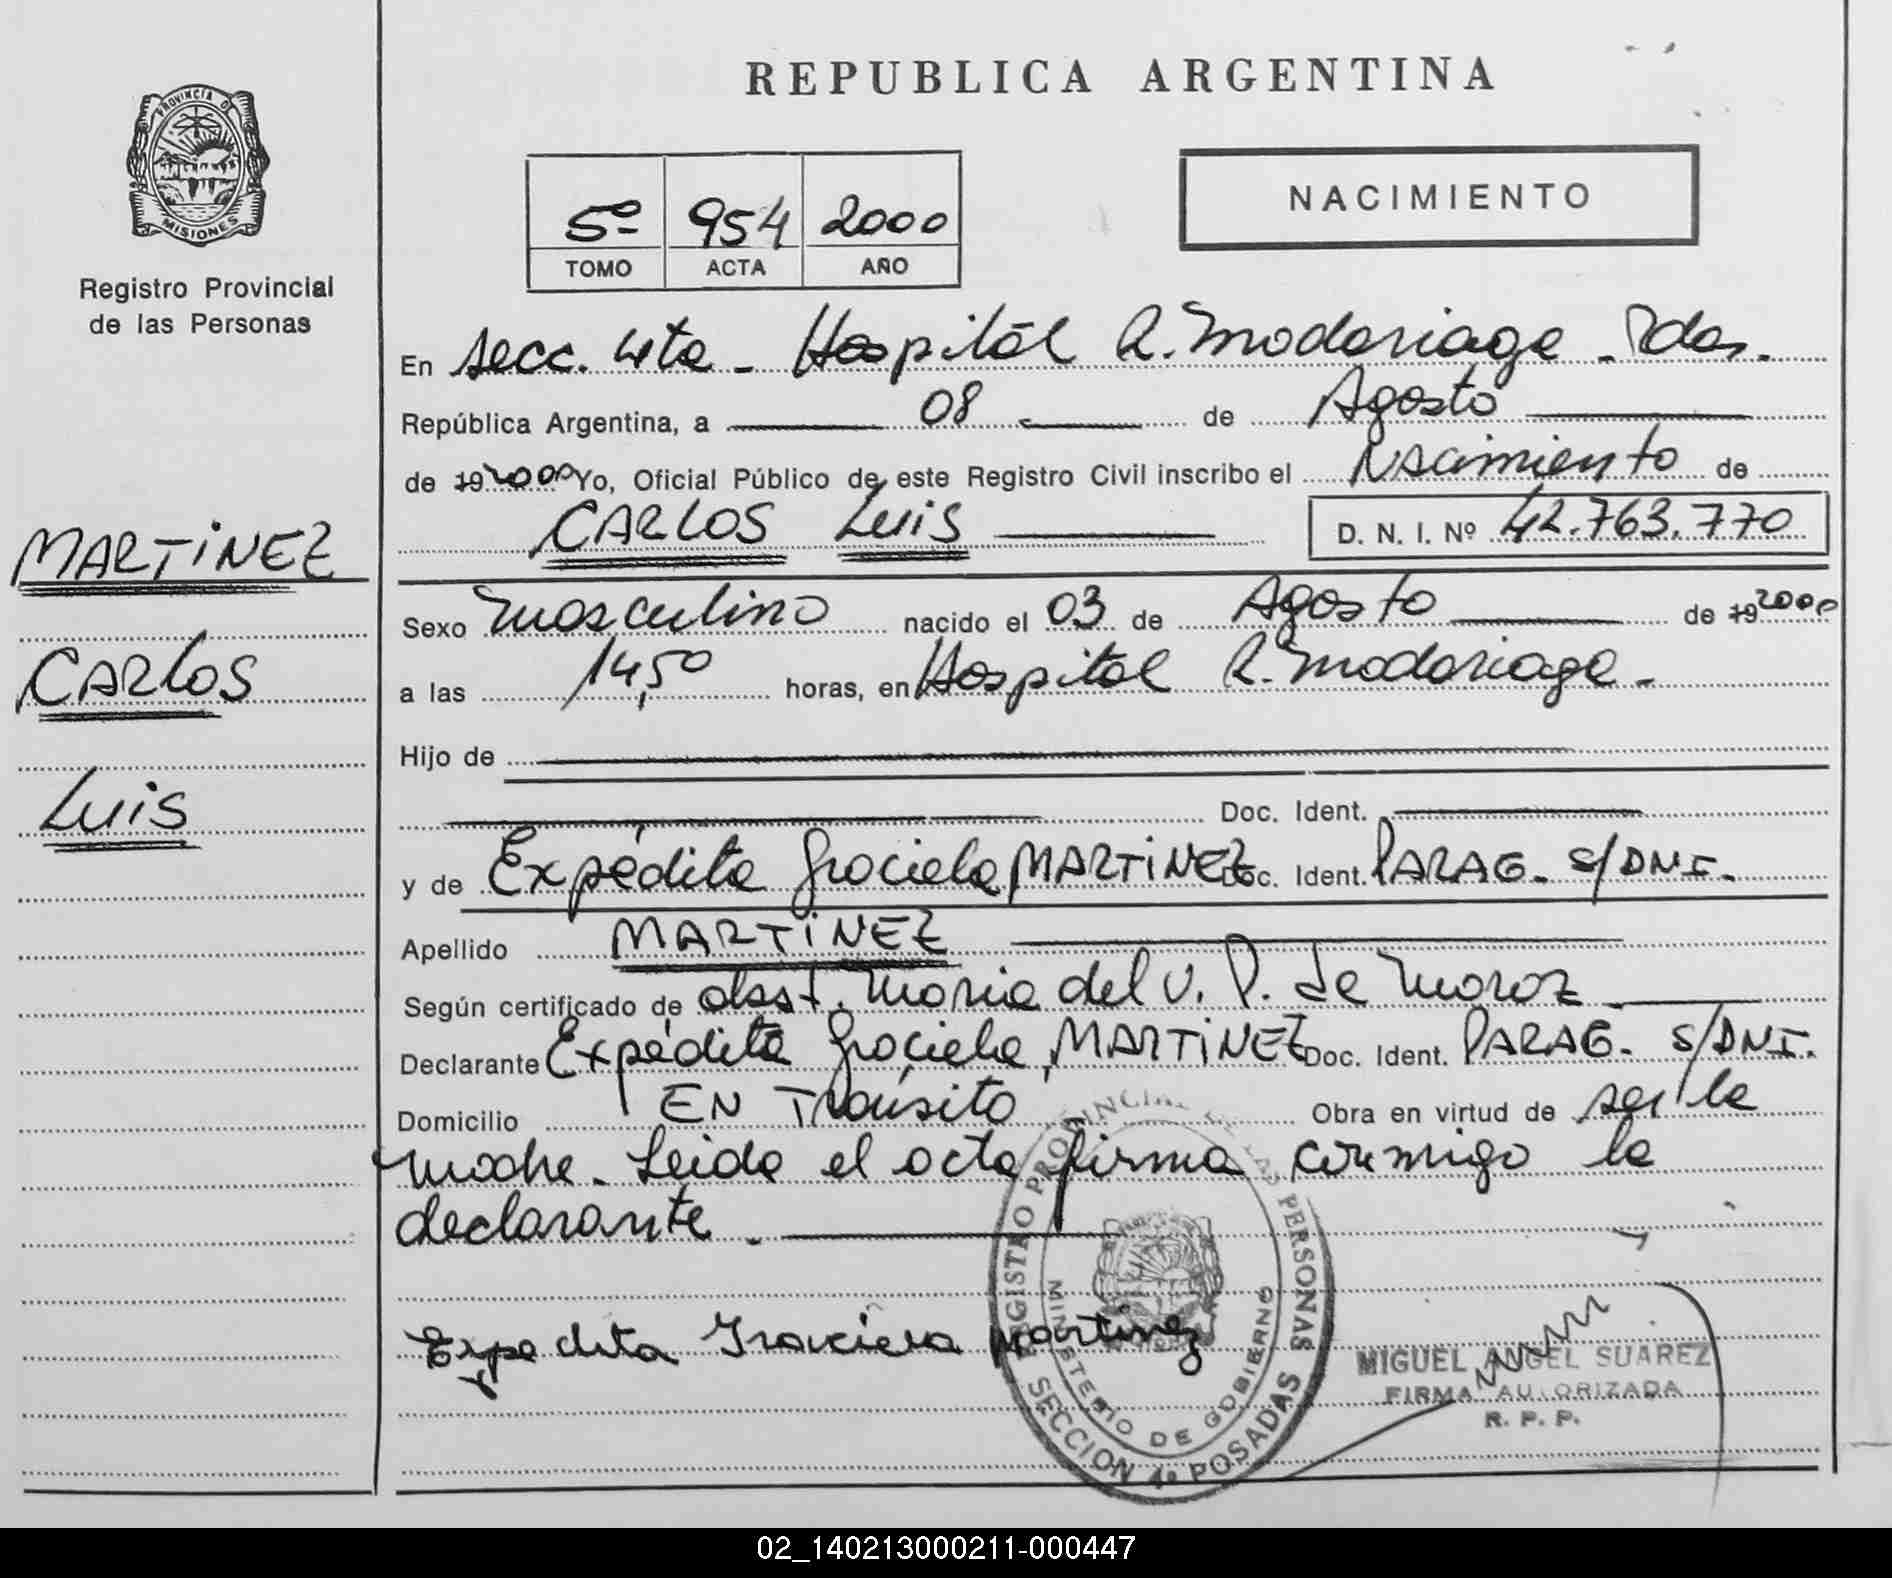 REPUBLICA ARGENTINA
PROVINCIA D
MISIONES
Registro Provincial
de las Personas
5º 954 2000
TOMO ACTA AÑO
NACIMIENTO
En secc. 4ta - Hospital R. Madariaga - Pdas.
República Argentina, a 08 de Agosto
de 19 2000 Yo, Oficial Público de este Registro Civil inscribo el Nacimiento de
CARLOS Luis D. N. I. Nº 42.763.770
MARTINEZ
CARLOS
Luis
Sexo masculino nacido el 03 de Agosto de 19 2000
a las 14,50 horas, en Hospital R. Madariaga -
Hijo de
Doc. Ident.
y de Expédita Graciela MARTINEZ Doc. Ident. PARAG. S/DNI.
Apellido MARTINEZ
Según certificado de obst. Maria del V. P. de Moroz
Declarante Expédita Graciela MARTINEZ Doc. Ident. PARAG. S/DNI.
Domicilio EN Tránsito Obra en virtud de ser la
madre. Leida el acta firma conmigo la
declarante.
Expedita Graciela Martinez
REGISTRO PROVINCIAL DE LAS PERSONAS
MINISTERIO DE GOBIERNO
SECCION 4º POSADAS
MIGUEL ANGEL SUAREZ
FIRMA AUTORIZADA
R. P. P.
02_140213000211-000447